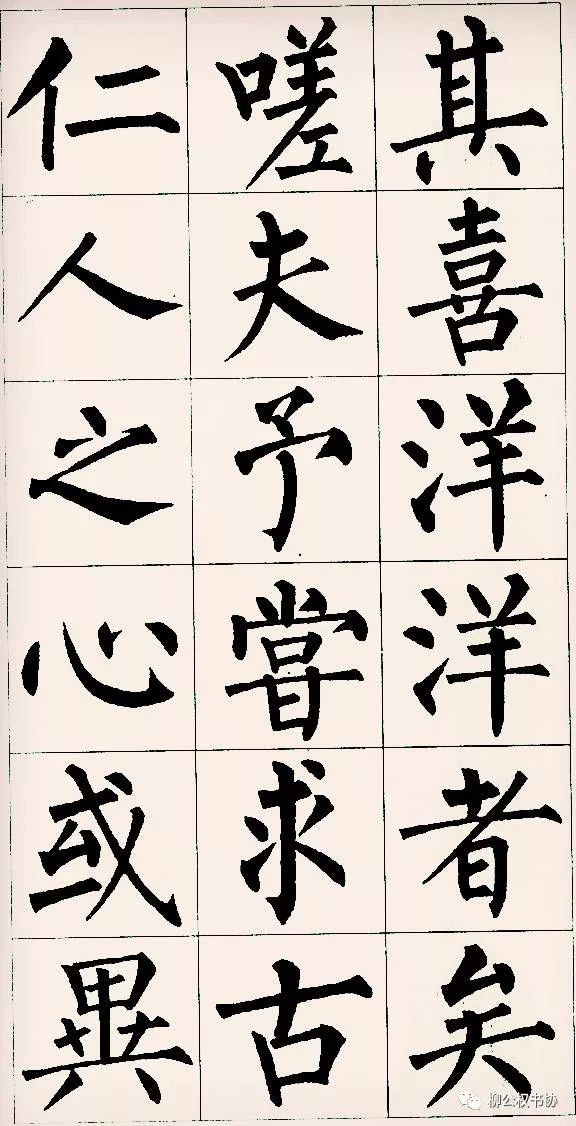 其喜洋洋者矣
嗟夫予嘗求古
仁人之心或異
柳公权书协